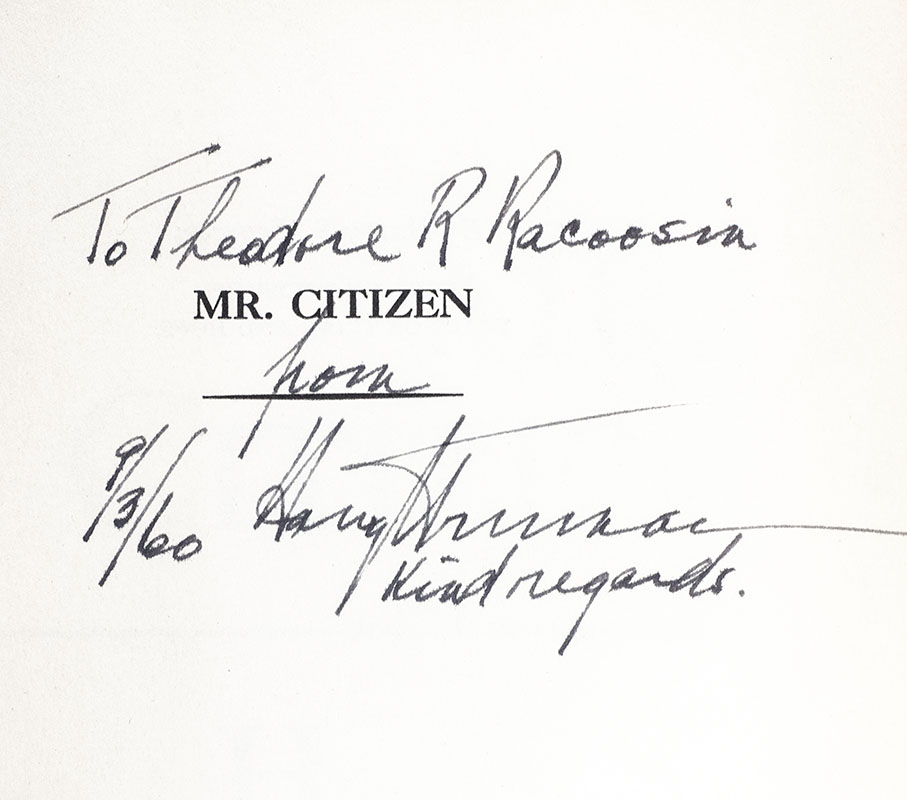 To Theodore R Racoosin
MR. CITIZEN
from
9/3/60 Harry Truman
Kind regards.